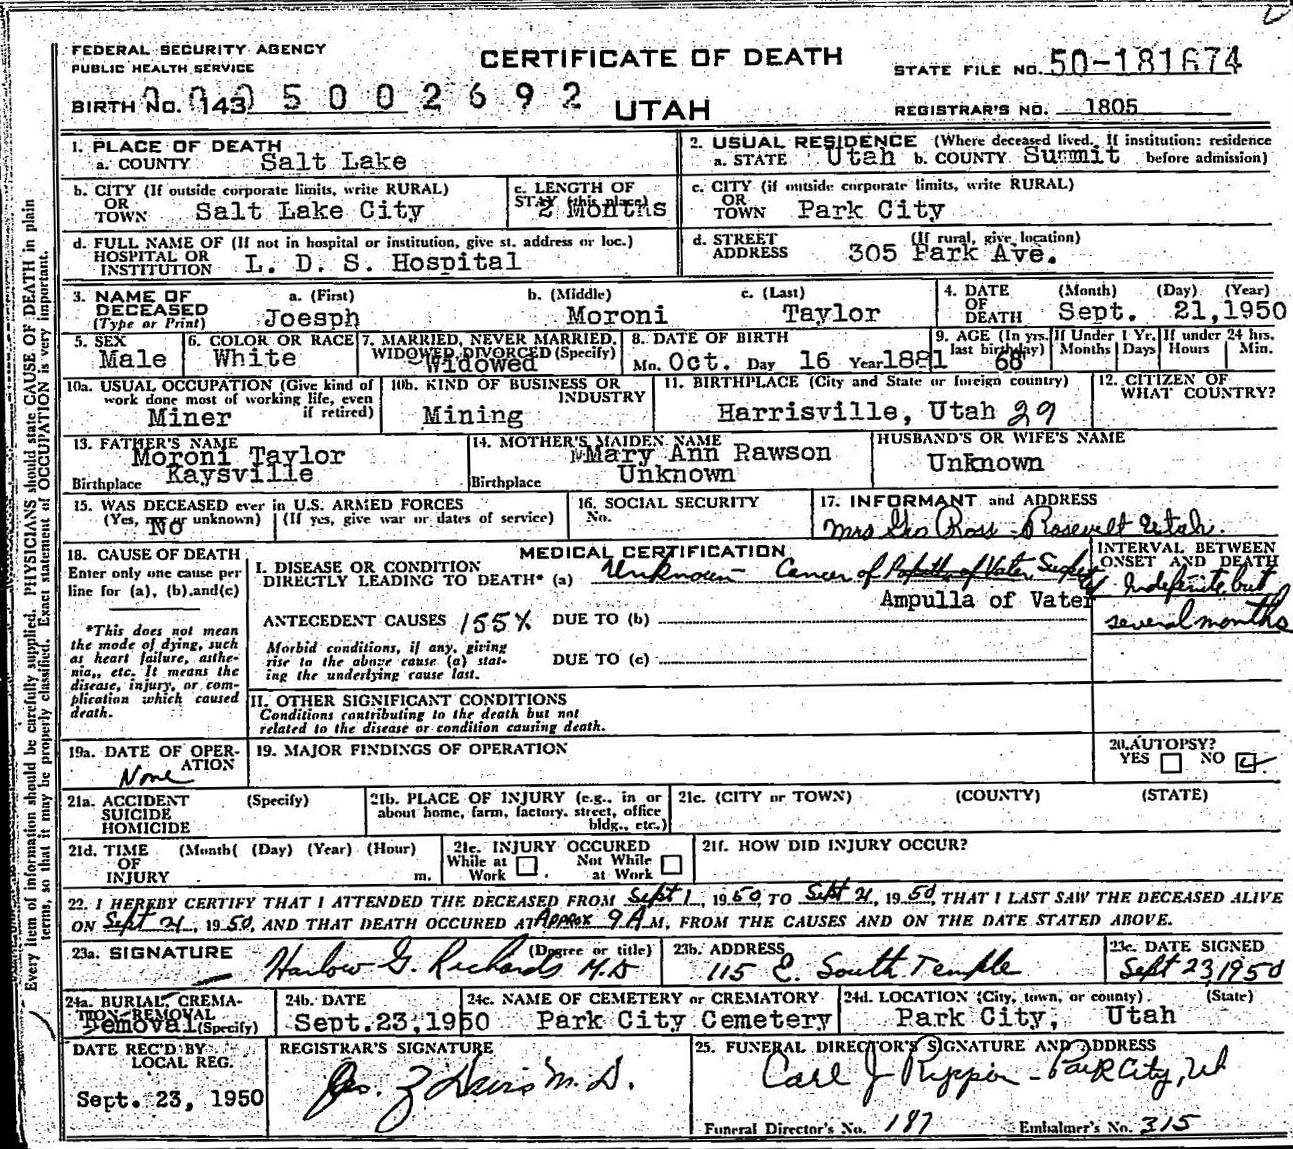 FEDERAL SECURITY AGENCY
PUBLIC HEALTH SERVICE
CERTIFICATE OF DEATH
STATE FILE NO. 50-181674
BIRTH NO. 143 0 5 0 0 2 6 9 2
UTAH
REGISTRAR'S NO. 1805
1. PLACE OF DEATH
a. COUNTY Salt Lake
2. USUAL RESIDENCE (Where deceased lived. If institution: residence
a. STATE Utah b. COUNTY Summit before admission)
b. CITY (If outside corporate limits, write RURAL)
OR
TOWN Salt Lake City
c. LENGTH OF
STAY (this place)
2 Months
c. CITY (if outside corporate limits, write RURAL)
OR
TOWN Park City
d. FULL NAME OF (If not in hospital or institution, give st. address or loc.)
HOSPITAL OR
INSTITUTION L. D. S. Hospital
d. STREET (If rural, give location)
ADDRESS 305 Park Ave.
3. NAME OF
DECEASED
(Type or Print)
a. (First) b. (Middle) c. (Last)
Joesph Moroni Taylor
4. DATE (Month) (Day) (Year)
OF
DEATH Sept. 21,1950
5. SEX
Male
6. COLOR OR RACE
White
7. MARRIED, NEVER MARRIED,
WIDOWED, DIVORCED (Specify)
Widowed
8. DATE OF BIRTH
Mo. Oct. Day 16 Year 1881
9. AGE (In yrs. last birthday)
68
If Under 1 Yr.
Months Days
If under 24 hrs.
Hours Min.
10a. USUAL OCCUPATION (Give kind of
work done most of working life, even
if retired)
Miner
10b. KIND OF BUSINESS OR
INDUSTRY
Mining
11. BIRTHPLACE (City and State or foreign country)
Harrisville, Utah 29
12. CITIZEN OF
WHAT COUNTRY?
13. FATHER'S NAME
Moroni Taylor
Birthplace Kaysville
14. MOTHER'S MAIDEN NAME
Mary Ann Rawson
Birthplace Unknown
HUSBAND'S OR WIFE'S NAME
Unknown
15. WAS DECEASED ever in U.S. ARMED FORCES
(Yes, no or unknown) (If yes, give war or dates of service)
No
16. SOCIAL SECURITY
No.
17. INFORMANT and ADDRESS
Mrs Geo Ross - Rosevelt Utah.
18. CAUSE OF DEATH
Enter only one cause per
line for (a), (b), and (c)
*This does not mean
the mode of dying, such
as heart failure, asthe-
nia,, etc. It means the
disease, injury, or com-
plication which caused
death.
MEDICAL CERTIFICATION
I. DISEASE OR CONDITION
DIRECTLY LEADING TO DEATH* (a) Unknown - Cancer of Papilla of Vater,
Ampulla of Vater
ANTECEDENT CAUSES 155X DUE TO (b)
Morbid conditions, if any, giving
rise to the above cause (a) stat-
ing the underlying cause last.
DUE TO (c)
INTERVAL BETWEEN
ONSET AND DEATH
Indefinite, but
several months
II. OTHER SIGNIFICANT CONDITIONS
Conditions contributing to the death but not
related to the disease or condition causing death.
19a. DATE OF OPER-
ATION
None
19. MAJOR FINDINGS OF OPERATION
20. AUTOPSY?
YES NO
21a. ACCIDENT (Specify)
SUICIDE
HOMICIDE
21b. PLACE OF INJURY (e.g., in or
about home, farm, factory, street, office
bldg., etc.)
21c. (CITY or TOWN) (COUNTY) (STATE)
21d. TIME (Month( (Day) (Year) (Hour)
OF
INJURY m.
21e. INJURY OCCURED
While at Work Not While at Work
21f. HOW DID INJURY OCCUR?
22. I HEREBY CERTIFY THAT I ATTENDED THE DECEASED FROM Sept 1, 1950, TO Sept 21, 1950 THAT I LAST SAW THE DECEASED ALIVE
ON Sept 21, 1950, AND THAT DEATH OCCURED AT Approx 9 A M, FROM THE CAUSES AND ON THE DATE STATED ABOVE.
23a. SIGNATURE (Degree or title)
Harlow G. Richards M.D
23b. ADDRESS
115 E. South Temple
23c. DATE SIGNED
Sept 23, 1950
24a. BURIAL, CREMA-
TION-REMOVAL
Removal (Specify)
24b. DATE
Sept.23,1950
24c. NAME OF CEMETERY or CREMATORY
Park City Cemetery
24d. LOCATION (City, town, or county) (State)
Park City, Utah
DATE REC'D BY
LOCAL REG.
Sept. 23, 1950
REGISTRAR'S SIGNATURE
Jos. Z Davis M.D.
25. FUNERAL DIRECTOR'S SIGNATURE AND ADDRESS
Carl J - Park City, Ut
Funeral Director's No. 187 Embalmer's No. 315
Every item of information should be carefully supplied. PHYSICIANS should state CAUSE OF DEATH in plain
terms, so that it may be properly classified. Exact statement of OCCUPATION is very important.